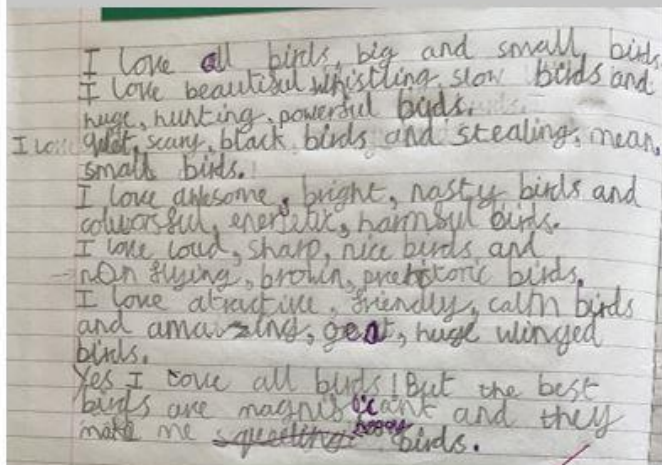 I love all birds, big and small birds
I love beautiful whistling, slow birds and
huge, hunting, powerful birds.
I love quiet, scary, black birds and stealing, mean,
small birds.
I love awesome, bright, nasty birds and
colourful, energetic, harmful birds.
I love loud, sharp, nice birds and
non flying, brown, prehistoric birds.
I love atractive, friendly, calm birds
and amazing, great, huge winged
birds.
Yes I love all birds! But the best
birds are magnificant and they
make me happy birds.